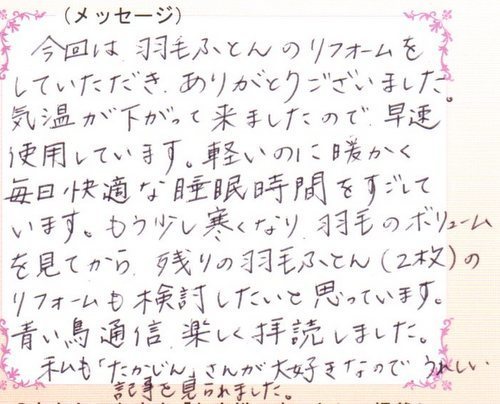 (メッセージ)
今回は、羽毛ふとんのリフォームを
していただき、ありがとうございました。
気温が下がって来ましたので、早速
使用しています。軽いのに暖かく
毎日快適な睡眠時間をすごして
います。もう少し寒くなり、羽毛のボリューム
を見てから、残りの羽毛ふとん(2枚)の
リフォームも検討したいと思っています。
青い鳥通信、楽しく拝読しました。
私も「たかじん」さんが大好きなので、うれしい
記事を見られました。